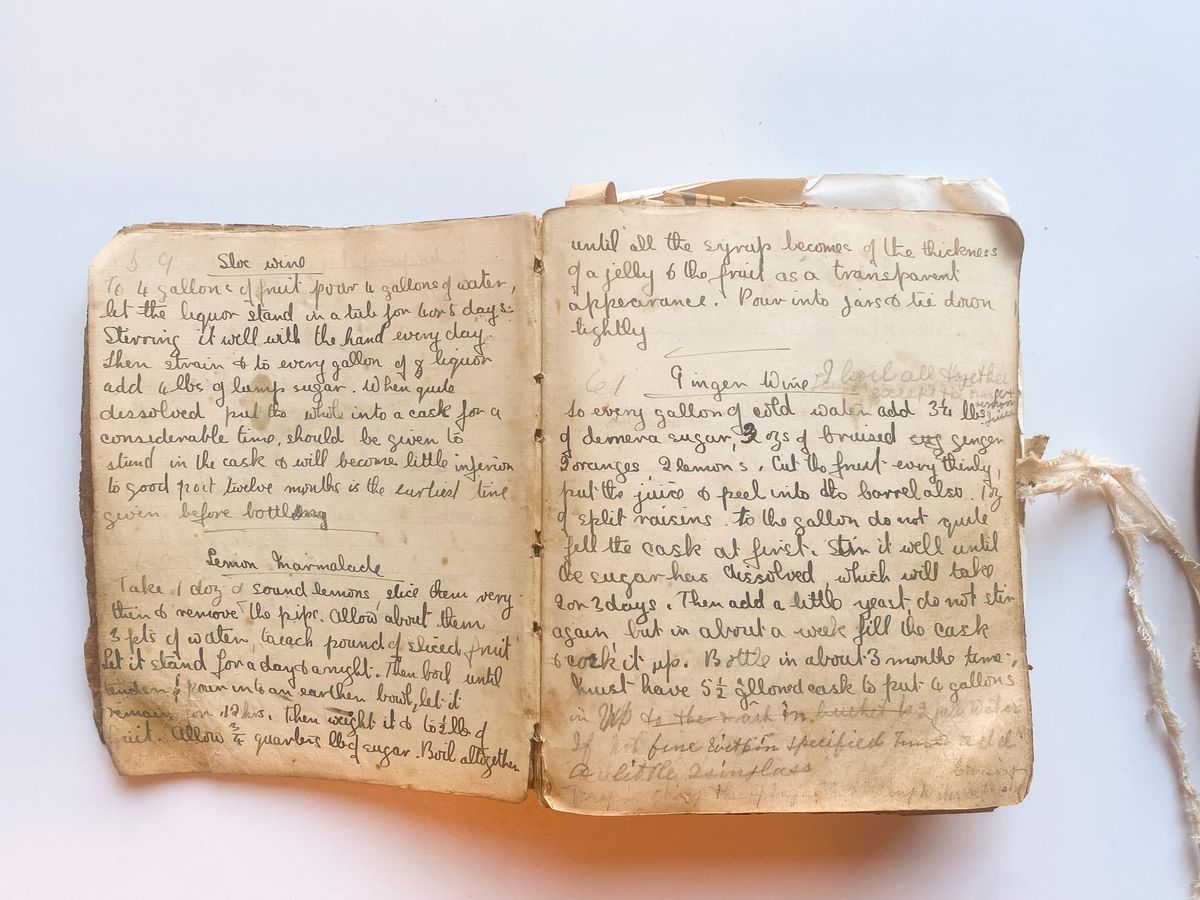 59
Sloe wine
To 4 gallons of fruit pour 4 gallons of water,
let the liquor stand in a tub for 4 or 5 days.
Sterring it well with the hand every day.
Then strain & to every gallon of liquor
add 4 lbs of lump sugar. When quite
dissolved put the whole into a cask for a
considerable time, should be given to
stand in the cask & will become little inferior
to good port twelve months is the earliest time
given before bottling
Lemon Marmalade
Take 1 doz sound lemons, slice them very
thin & remove the pips. Allow about them
3 pts of water, to each pound of sliced fruit
Let it stand for a day & a night. Then boil until
tender & pour into an earthen bowl, let it
remain for 12 hrs. Then weight it & to lb of
fruit. Allow ¾ quarters lbs of sugar. Boil altogether
until all the syrup becomes of the thickness
of a jelly & the fruit as a transparent
appearance. Pour into jars & tie down
tightly
61
Ginger Wine I boil all together
To every gallon of cold water add 3¼ lbs
of demera sugar, 3 ozs of bruised sug ginger
5 oranges 2 lemons. Cut the fruit very thinly,
put the juice & peel into the barrel also. 1 oz
of split raisins. to the gallon do not quite
fill the cask at first. Stir it well until
the sugar has dissolved, which will take
2 or 3 days. Then add a little yeast, do not stir
again, but in about a week fill the cask
& cork it up. Bottle in about 3 months time,
must have 5½ glloned cask to put 4 gallons
in to the in bucket to 2 water
If not fine within specified time add
a little Isinglass